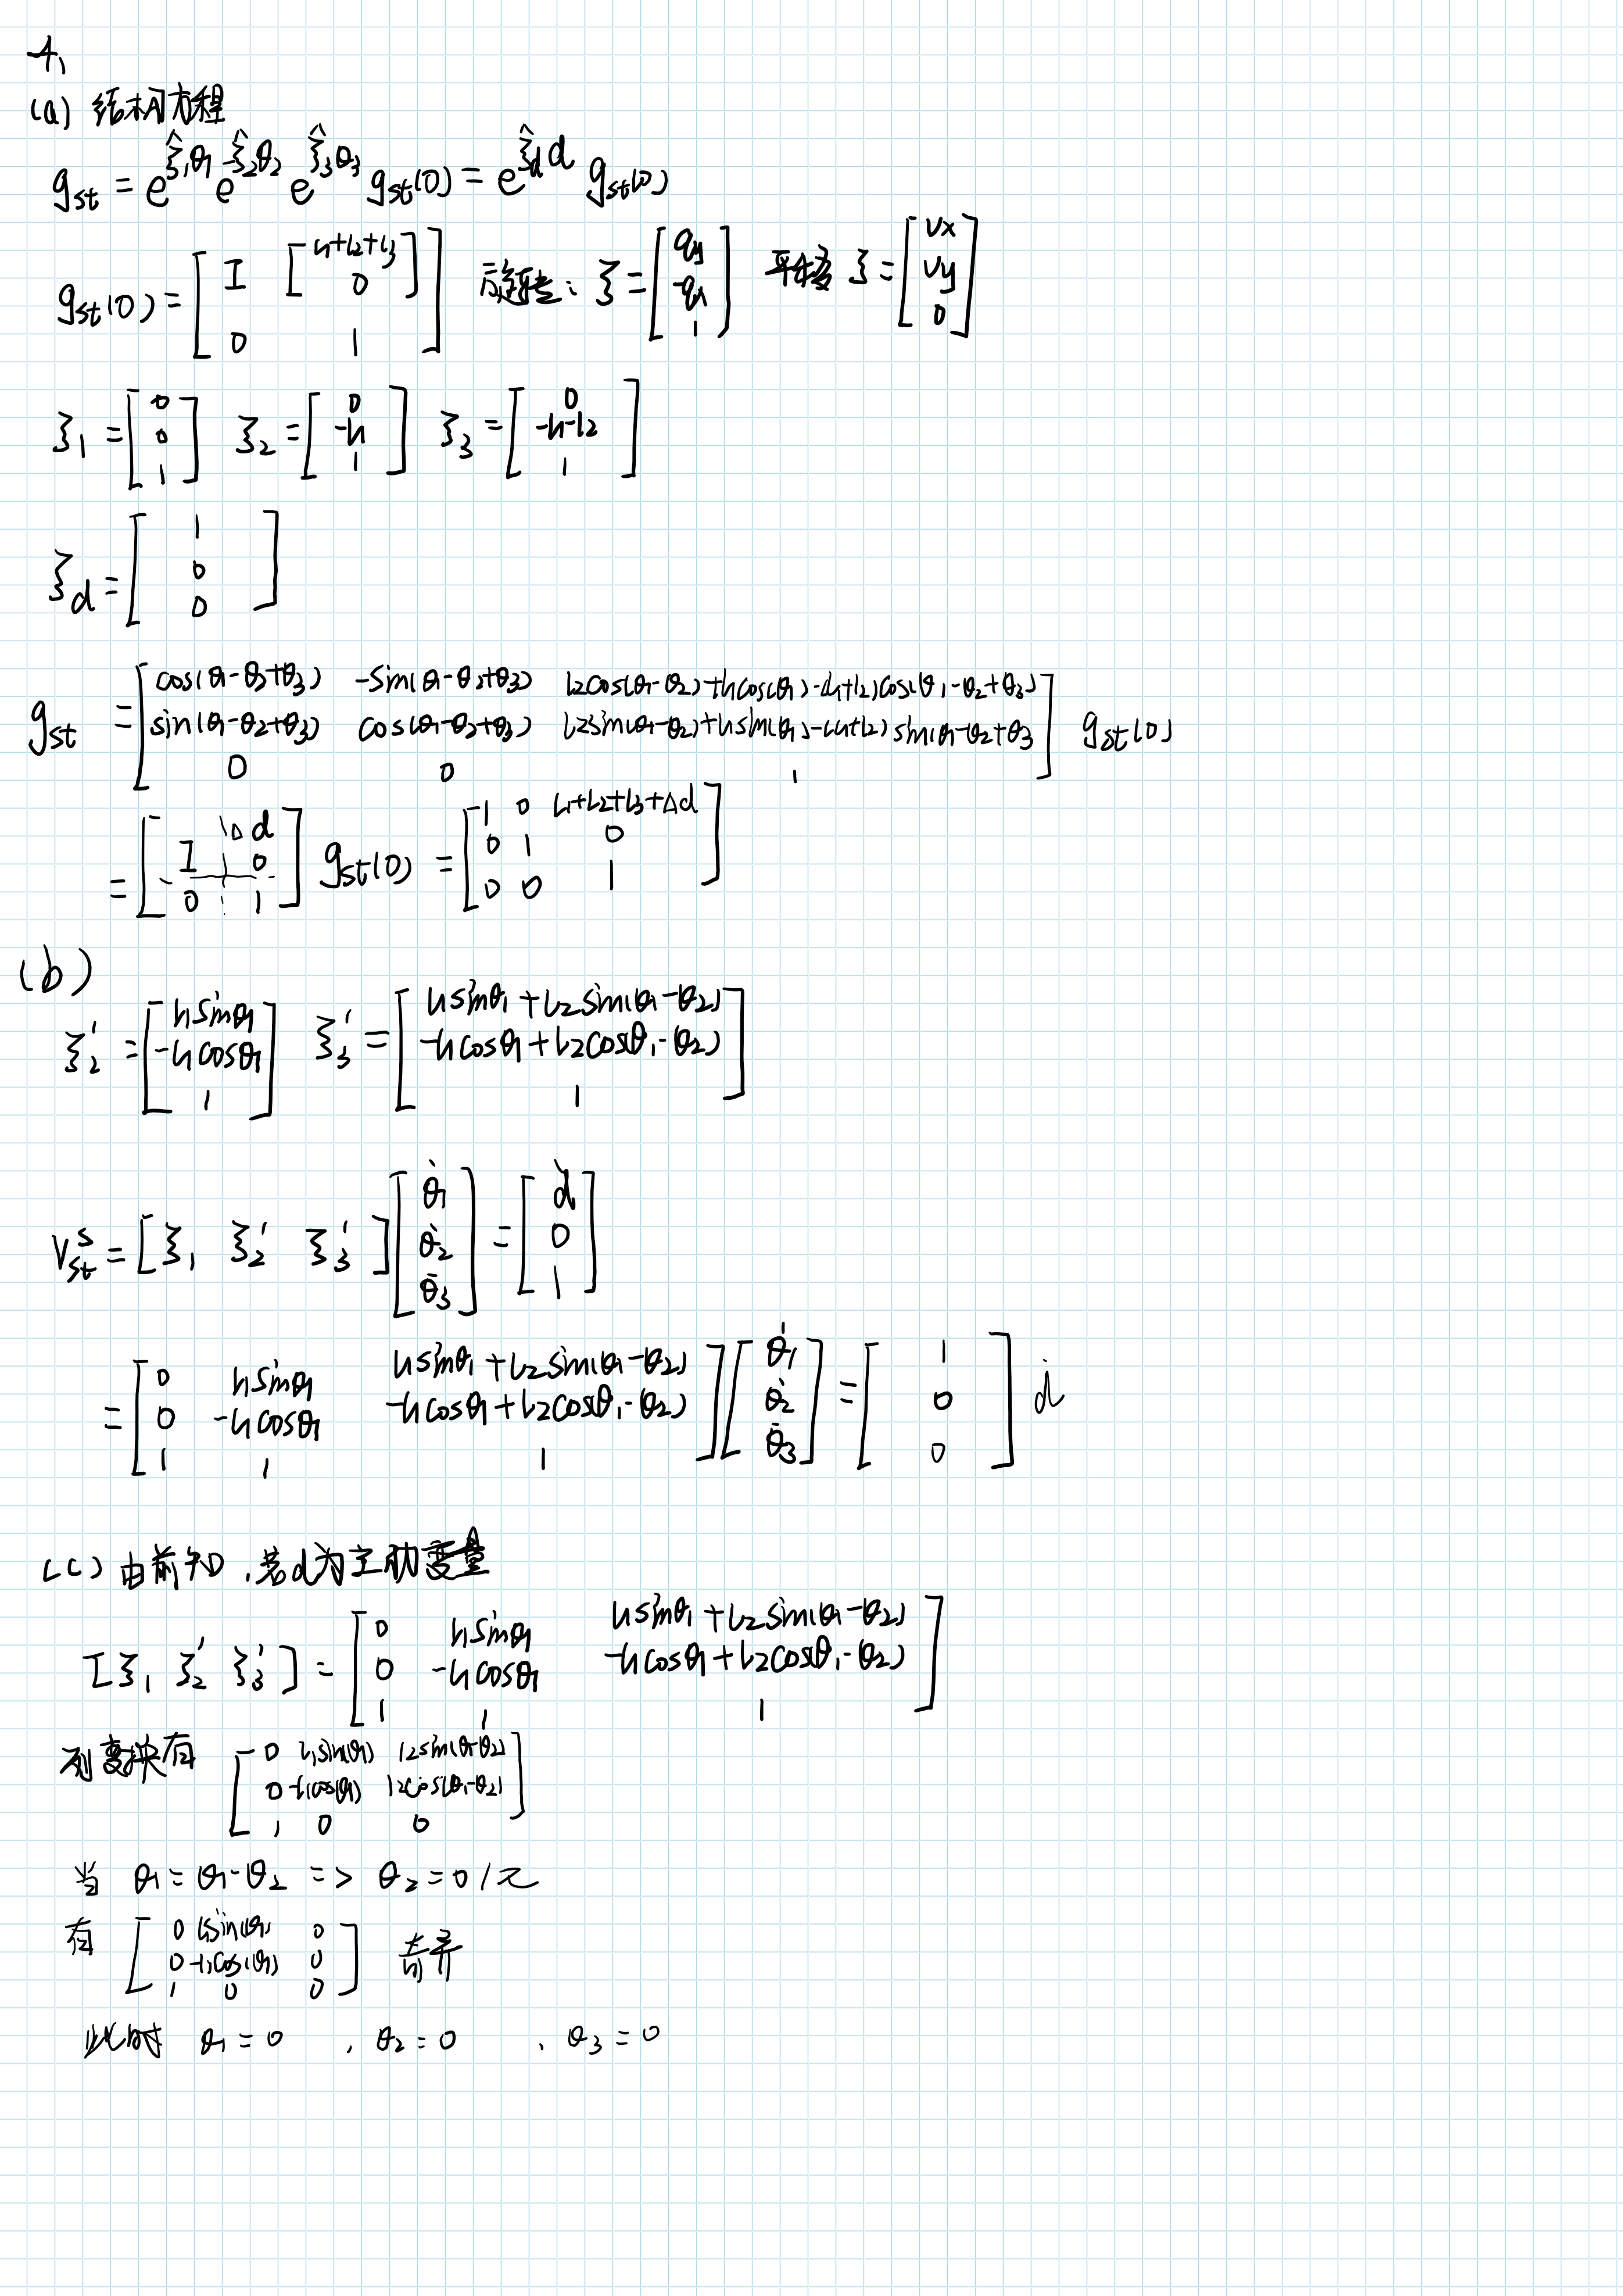 4、
(a) 结构方程
g_st = e^{ξ̂₁θ₁} e^{-ξ̂₂θ₂} e^{ξ̂₃θ₃} g_st(0) = e^{ξ̂_d d} g_st(0)
g_st(0) = [ I [ l₁+l₂+l₃ ; 0 ] ; 0 1 ] 旋转: ξ = [ q_y ; -q_x ; 1 ] 平移 ξ = [ vx ; vy ; 0 ]
ξ₁ = [ 0 ; 0 ; 1 ] ξ₂ = [ 0 ; -l₁ ; 1 ] ξ₃ = [ 0 ; -l₁-l₂ ; 1 ]
ξ_d = [ 1 ; 0 ; 0 ]
g_st = [ cos(θ₁-θ₂+θ₃) -sin(θ₁-θ₂+θ₃) l₂cos(θ₁-θ₂)+l₁cos(θ₁)-(l₁+l₂)cos(θ₁-θ₂+θ₃) ; sin(θ₁-θ₂+θ₃) cos(θ₁-θ₂+θ₃) l₂sin(θ₁-θ₂)+l₁sin(θ₁)-(l₁+l₂)sin(θ₁-θ₂+θ₃ ; 0 0 1 ] g_st(0)
= [ I Δd 0 ; 0 1 ] g_st(0) = [ 1 0 L₁+L₂+L₃+Δd ; 0 1 0 ; 0 0 1 ]
(b)
ξ₂' = [ l₁sinθ₁ ; -l₁cosθ₁ ; 1 ] ξ₃' = [ l₁sinθ₁+l₂sin(θ₁-θ₂) ; -l₁cosθ₁+l₂cos(θ₁-θ₂) ; 1 ]
V_st^s = [ ξ₁ ξ₂' ξ₃' ] [ θ̇₁ ; θ̇₂ ; θ̇₃ ] = [ ḋ ; 0 ; 1 ]
= [ 0 l₁sinθ₁ l₁sinθ₁+l₂sin(θ₁-θ₂) ; 0 -l₁cosθ₁ -l₁cosθ₁+l₂cos(θ₁-θ₂) ; 1 1 1 ] [ θ̇₁ ; θ̇₂ ; θ̇₃ ] = [ 1 ; 0 ; 0 ] ḋ
(c) 由前知,若d为主动变量
[ ξ₁ ξ₂' ξ₃' ] = [ 0 l₁sinθ₁ l₁sinθ₁+l₂sin(θ₁-θ₂) ; 0 -l₁cosθ₁ -l₁cosθ₁+l₂cos(θ₁-θ₂) ; 1 1 1 ]
列变换有 [ 0 l₁sin(θ₁) l₂sin(θ₁-θ₂) ; 0 -l₁cos(θ₁) l₂cos(θ₁-θ₂) ; 1 0 0 ]
当 θ₁=θ₁-θ₂ => θ₂=0/π
有 [ 0 l₁sin(θ₁) 0 ; 0 -l₁cos(θ₁) 0 ; 1 0 0 ] 奇异
此时 θ₁=0 , θ₂=0 , θ₃=0